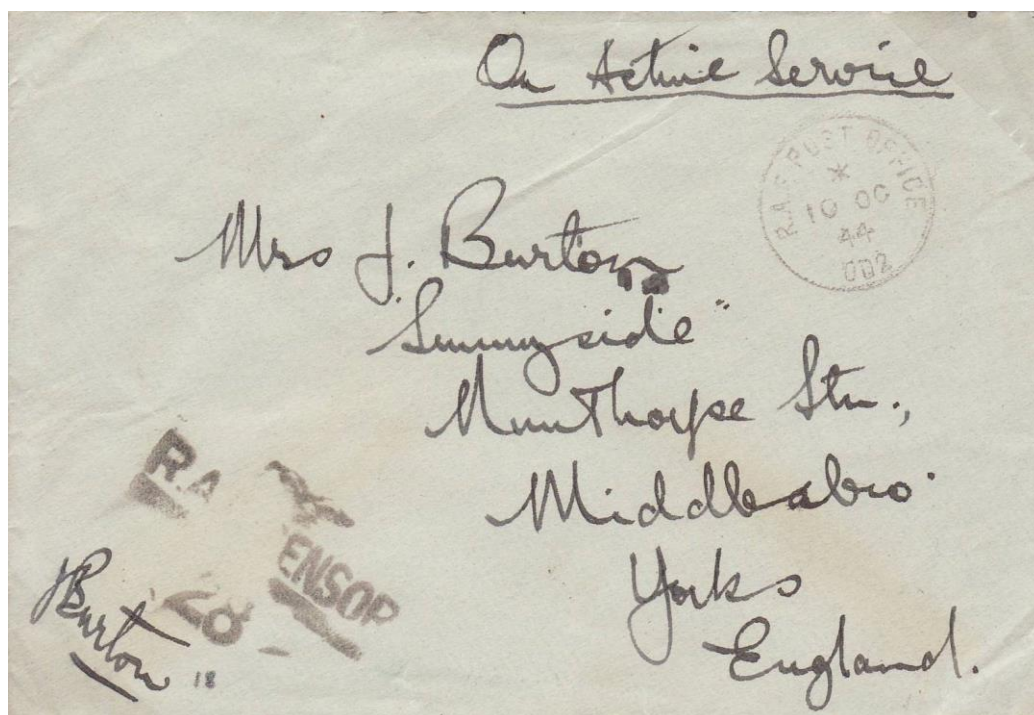 On Active Service
R.A.F. POST OFFICE
*
10 OC
44
002
Mrs J. Burton
"Sunnyside"
Nunthorpe Stn.,
Middlesbro'
Yorks
England.
R.A
ENSOR
28
JBurton
18